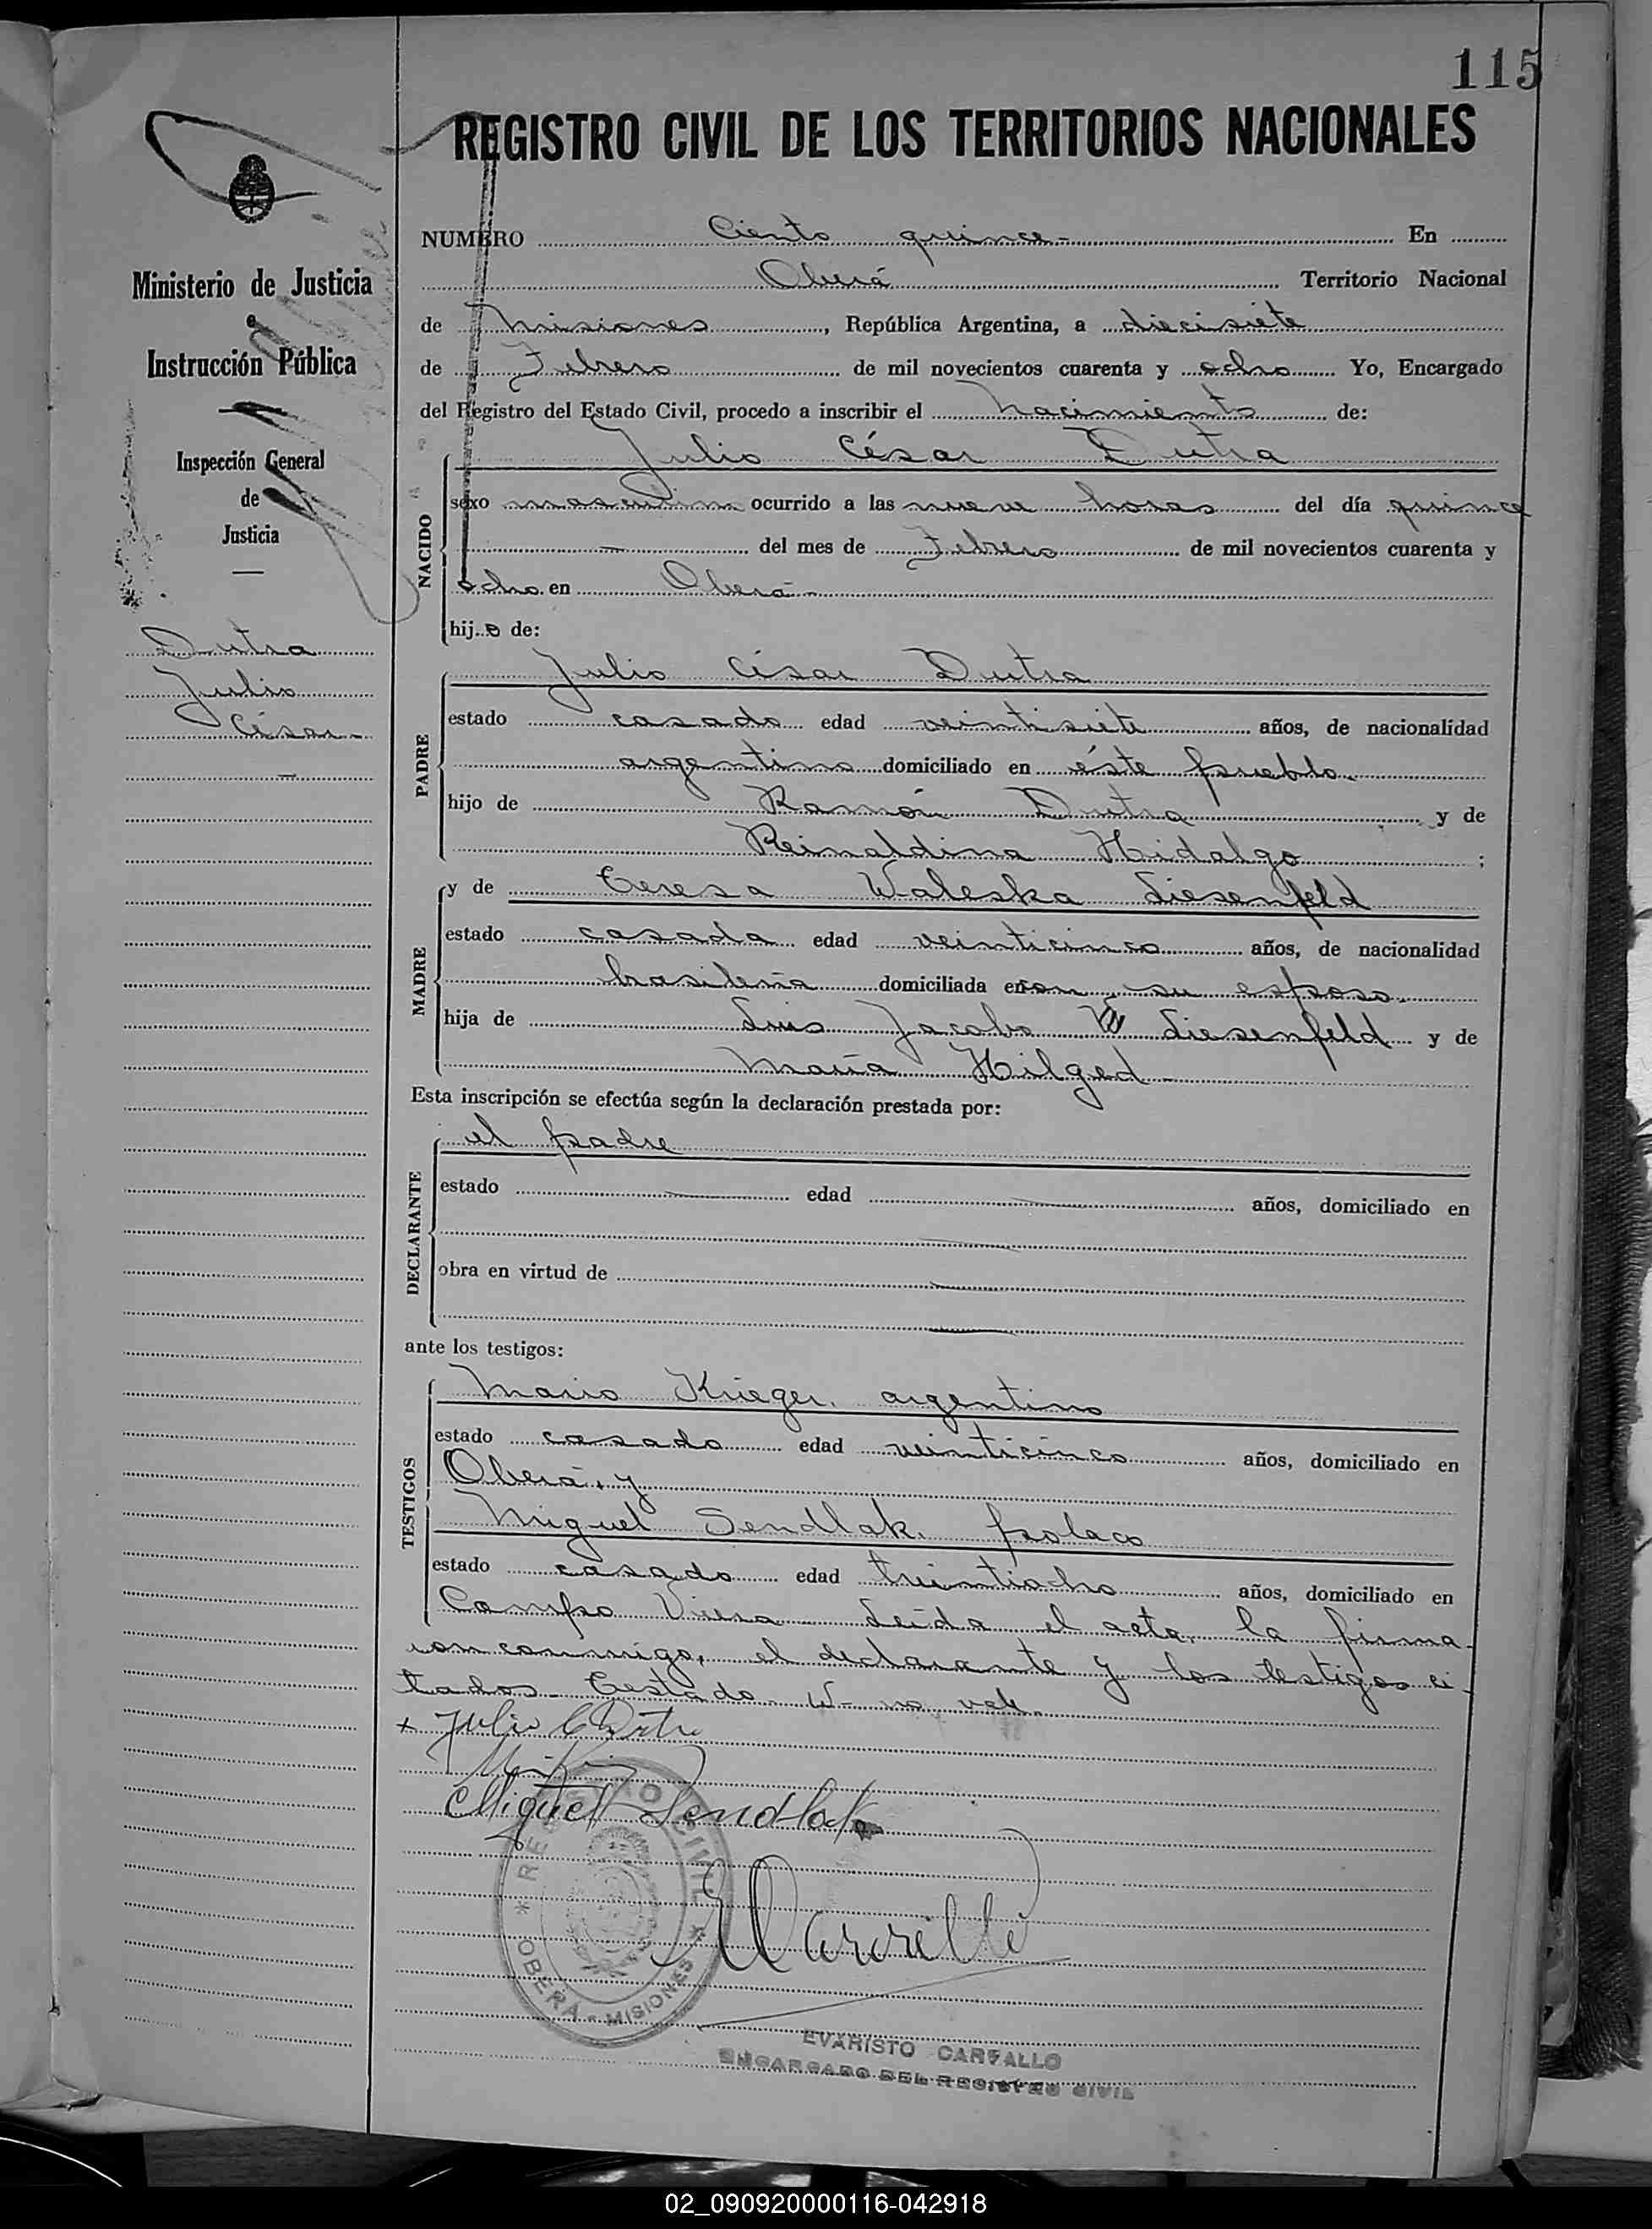 115
REGISTRO CIVIL DE LOS TERRITORIOS NACIONALES
Ministerio de Justicia
e
Instrucción Pública
Inspección General
de
Justicia
Dutra
Julio
César.-
NUMERO Ciento quince.- En
Oberá Territorio Nacional
de Misiones, República Argentina, a diecisiete
de Febrero de mil novecientos cuarenta y ocho Yo, Encargado
del Registro del Estado Civil, procedo a inscribir el nacimiento de:
NACIDO
Julio César Dutra
sexo masculino ocurrido a las nueve horas del día quince
— del mes de Febrero de mil novecientos cuarenta y
ocho en Oberá.-
hijo de:
PADRE
Julio César Dutra
estado casado edad veintisiete años, de nacionalidad
argentino domiciliado en éste pueblo.
hijo de Ramón Dutra y de
Reinaldina Hidalgo ;
MADRE
y de Teresa Waleska Liesenfeld
estado casada edad veinticinco años, de nacionalidad
brasileña domiciliada con su esposo.
hija de Luis Jacobo W Liesenfeld y de
María Hilged.-
Esta inscripción se efectúa según la declaración prestada por:
DECLARANTE
el padre
estado edad años, domiciliado en
obra en virtud de
ante los testigos:
TESTIGOS
Mario Krieger, argentino
estado casado edad veinticinco años, domiciliado en
Oberá, y
Miguel Sendlak, polaco
estado casado edad treintiocho años, domiciliado en
Campo Viera. Leída el acta, la firma-
ron conmigo, el declarante y los testigos ci-
tados.- Testado- W- no vale.
+ Julio C Dutra
Miguel Sendlak
REGISTRO CIVIL
* OBERÁ - MISIONES *
ECarvallo
EVARISTO CARVALLO
ENCARGADO DEL REGISTRO CIVIL
02_090920000116-042918